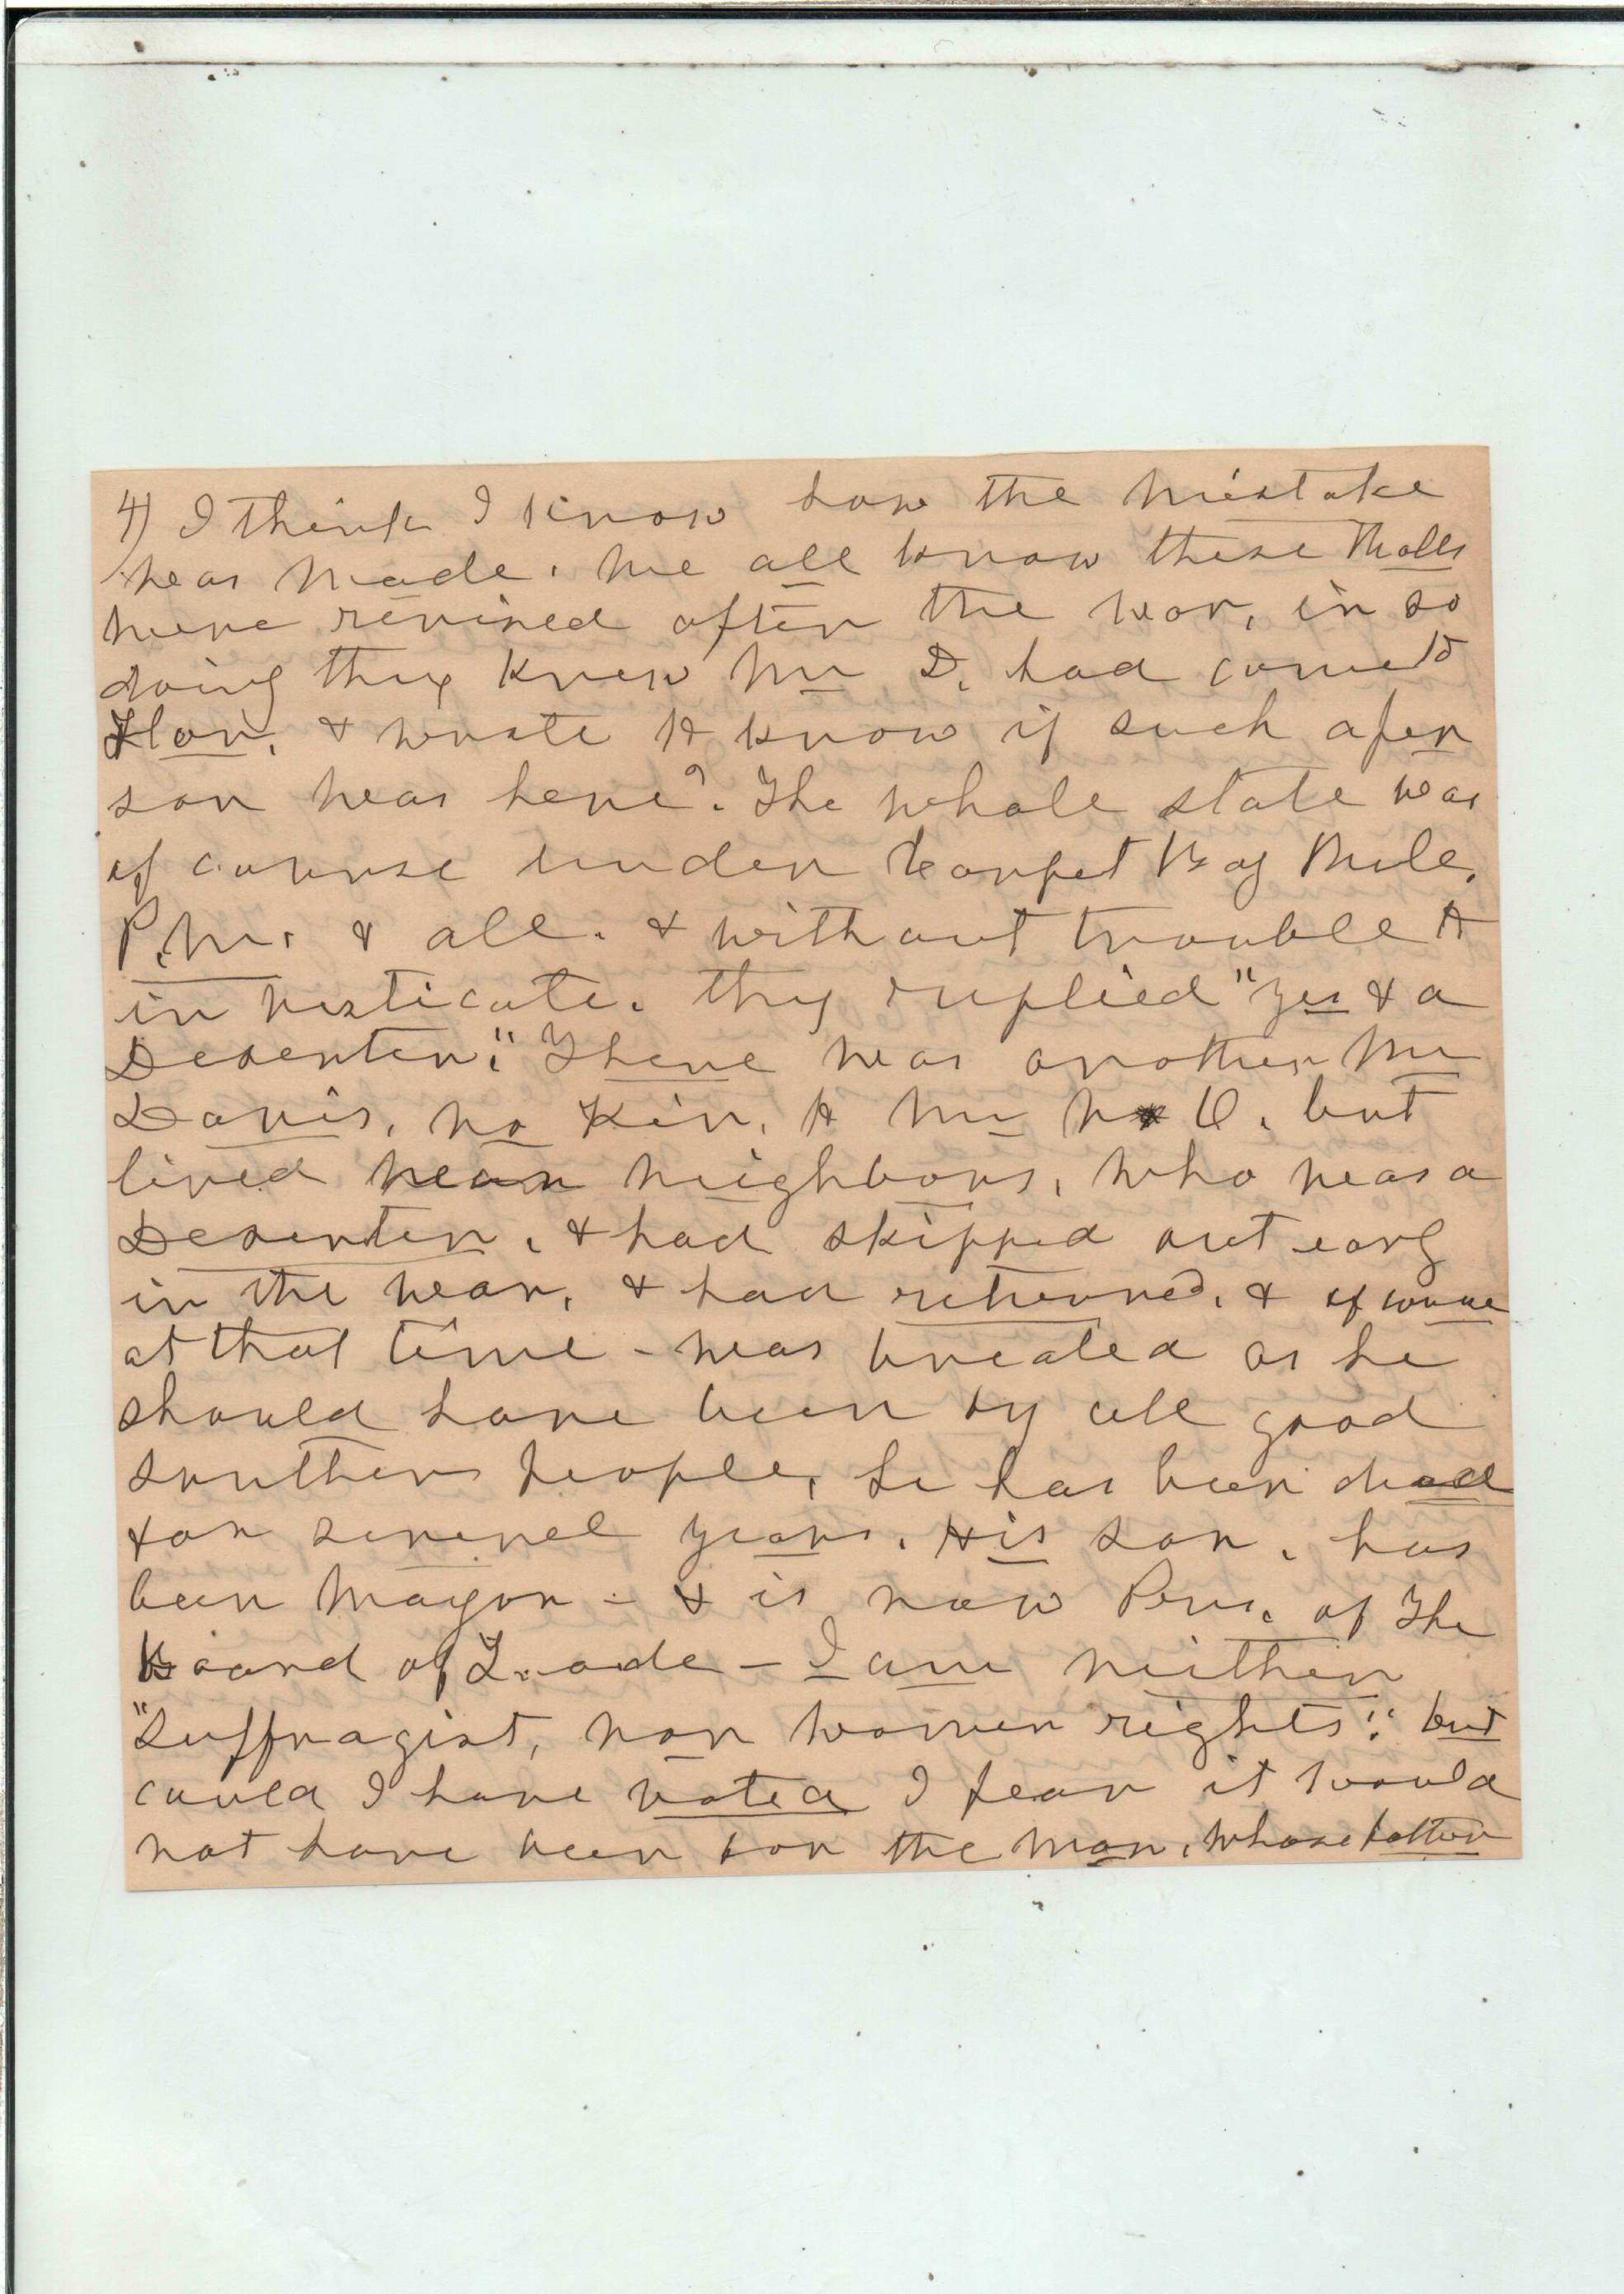 4) I think I know how the mistake
was made. We all know these Rolls
were revised after the war, in so
doing they knew Mr D. had come to
Flor, & wrote to know if such a per
son was here? The whole state was
of course under Carpet Bag Rule.
P.M. & all. & without trouble to
investicate. they replied "Yes & a
Deserter". There was another Mr
Davis, no Kin, to Mr W. O. but
lived near neighbors, who was a
Deserter, & had skipped out early
in the war, & had returned, & of course
at that time - was treated as he
should have been by all good
southern people, he has been dead
for several years. His son, has
been Mayor - & is now Pres. of The
Board of Trade - I am neither
"Suffragist, nor women rights": but
could I have voted I fear it would
not have been for the man, whose father